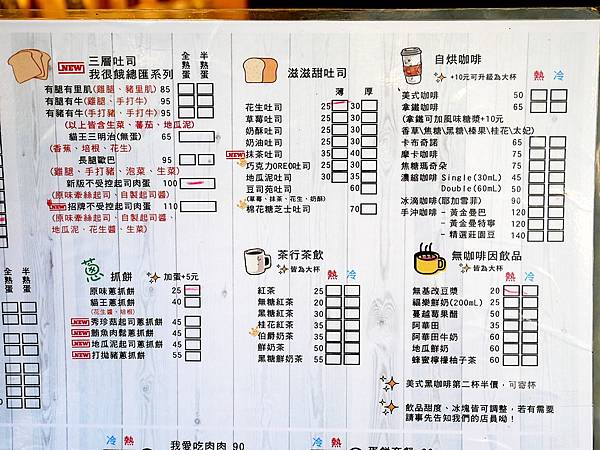 NEW 三層吐司
我很餓總匯系列
全熟蛋 半熟蛋
有腿有里肌(雞腿、豬里肌) 85
有腿有牛(雞腿、手打牛) 95
有豬有牛(手打豬、手打牛) 95
(以上皆含生菜、蕃茄、地瓜泥)
貓王三明治(無蛋) 65
(香蕉、培根、花生)
長腿歐巴 95
(雞腿、手打豬、泡菜、生菜)
新版不受控起司肉蛋 100
(原味牽絲起司、自製起司醬)
NEW 招牌不受控起司肉蛋 110
(原味牽絲起司、自製起司醬、
地瓜泥、花生醬、生菜)
滋滋甜吐司
薄 厚
花生吐司 25 30
草莓吐司 25 30
奶酥吐司 25 30
奶油吐司 25 30
NEW 抹茶吐司 35 40
巧克力OREO吐司 35 40
地瓜泥吐司 25 30
豆司苑吐司 60
(草莓、抹茶、花生、奶酥)
棉花糖芝士吐司 70
自烘咖啡
+10元可升級為大杯 熱 冷
美式咖啡 50
拿鐵咖啡 65
(拿鐵可加風味糖漿+10元
香草/焦糖/黑糖/榛果/桂花/太妃)
卡布奇諾 65
摩卡咖啡 75
焦糖瑪奇朵 75
濃縮咖啡 Single(30mL) 45
Double(60mL) 50
冰滴咖啡(耶加雪菲) 90
手沖咖啡 - 黃金曼巴 120
- 黃金曼特寧 120
- 精選莊園豆 140
全熟蛋 半熟蛋
蔥 抓餅 加蛋+5元
原味蔥抓餅 25
貓王蔥抓餅 40
(花生醬、培根)
NEW 秀珍菇起司蔥抓餅 45
NEW 鮪魚肉鬆蔥抓餅 45
NEW 地瓜泥起司蔥抓餅 45
NEW 打拋豬蔥抓餅 55
茶行茶飲
皆為大杯 熱 冷
紅茶 25
無糖紅茶 25
黑糖紅茶 30
桂花紅茶 30
伯爵奶茶 35
鮮奶茶 50
黑糖鮮奶茶 55
無咖啡因飲品
皆為大杯 熱 冷
無基改豆漿 20
福樂鮮奶(200mL) 25
蔓越莓果醋 50
阿華田 50
阿華田牛奶 60
地瓜鮮奶 60
蜂蜜檸檬柚子茶 60
美式黑咖啡第二杯半價，可寄杯
飲品甜度、冰塊皆可調整，若有需要
請事先告知我們的店員呦！
冷 熱
我愛吃肉肉 90
冷 熱